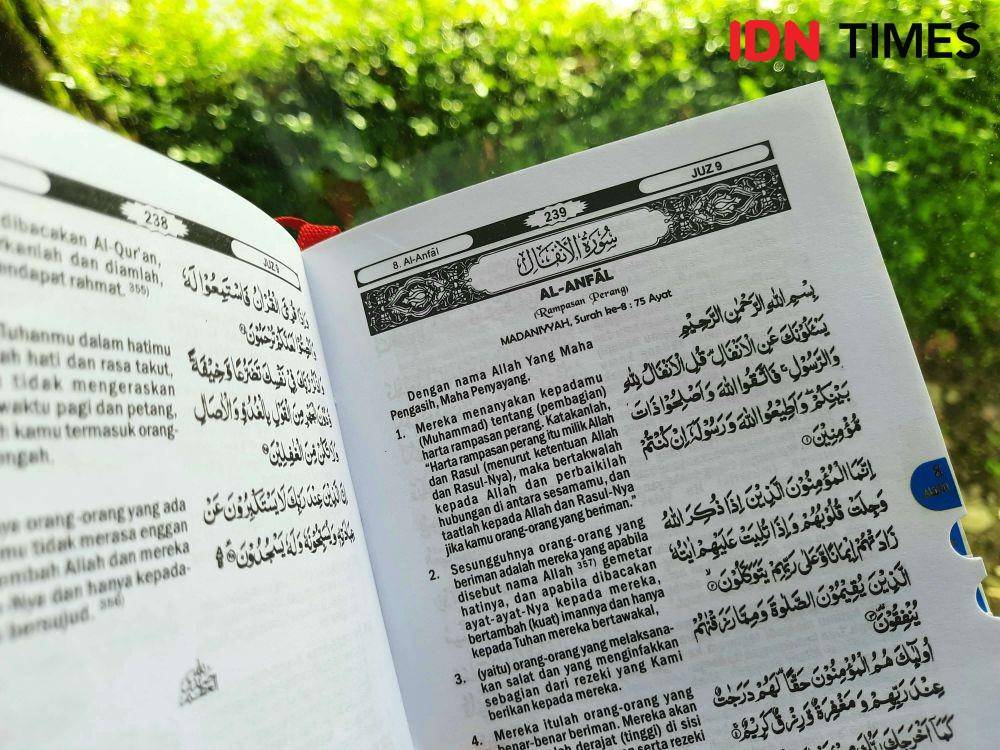 IDN TIMES
238
JUZ 9
dibacakan Al-Qur'an,
dan diamlah,
rahmat. 355)
Tuhanmu dalam hatimu
hati dan rasa takut,
tidak mengeraskan
waktu pagi dan petang,
kamu termasuk orang-
orang-orang yang ada
tidak merasa enggan
Allah dan mereka
-Nya dan hanya kepada-
bersujud. 356)
وَاِذَا قُرِئَ الْقُرْاٰنُ فَاسْتَمِعُوْا لَهٗ
وَاَنْصِتُوْا لَعَلَّكُمْ تُرْحَمُوْنَ
وَاذْكُرْ رَّبَّكَ فِيْ نَفْسِكَ تَضَرُّعًا وَّخِيْفَةً
وَّدُوْنَ الْجَهْرِ مِنَ الْقَوْلِ بِالْغُدُوِّ وَالْاٰصَالِ
وَلَا تَكُنْ مِّنَ الْغٰفِلِيْنَ
اِنَّ الَّذِيْنَ عِنْدَ رَبِّكَ لَا يَسْتَكْبِرُوْنَ عَنْ
عِبَادَتِهٖ وَيُسَبِّحُوْنَهٗ وَلَهٗ يَسْجُدُوْنَ
8. Al-Anfāl
239
JUZ 9
سُوْرَةُ الْاَنْفَالِ
AL-ANFĀL
(Rampasan Perang)
MADANIYYAH, Surah ke-8 : 75 Ayat
Dengan nama Allah Yang Maha
Pengasih, Maha Penyayang.
1. Mereka menanyakan kepadamu
(Muhammad) tentang (pembagian)
harta rampasan perang. Katakanlah,
"Harta rampasan perang itu milik Allah
dan Rasul (menurut ketentuan Allah
dan Rasul-Nya), maka bertakwalah
kepada Allah dan perbaikilah
hubungan di antara sesamamu, dan
taatlah kepada Allah dan Rasul-Nya
jika kamu orang-orang yang beriman."
2. Sesungguhnya orang-orang yang
beriman adalah mereka yang apabila
disebut nama Allah 357) gemetar
hatinya, dan apabila dibacakan
ayat-ayat-Nya kepada mereka,
bertambah (kuat) imannya dan hanya
kepada Tuhan mereka bertawakal,
3. (yaitu) orang-orang yang melaksana-
kan salat dan yang menginfakkan
sebagian dari rezeki yang Kami
berikan kepada mereka.
4. Mereka itulah orang-orang yang
benar-benar beriman. Mereka akan
derajat (tinggi) di sisi
serta rezeki
بِسْمِ اللّٰهِ الرَّحْمٰنِ الرَّحِيْمِ
يَسْـَٔلُوْنَكَ عَنِ الْاَنْفَالِۗ قُلِ الْاَنْفَالُ لِلّٰهِ
وَالرَّسُوْلِۚ فَاتَّقُوا اللّٰهَ وَاَصْلِحُوْا ذَاتَ
بَيْنِكُمْۖ وَاَطِيْعُوا اللّٰهَ وَرَسُوْلَهٗٓ اِنْ كُنْتُمْ
مُّؤْمِنِيْنَ ١
اِنَّمَا الْمُؤْمِنُوْنَ الَّذِيْنَ اِذَا ذُكِرَ اللّٰهُ
وَجِلَتْ قُلُوْبُهُمْ وَاِذَا تُلِيَتْ عَلَيْهِمْ اٰيٰتُهٗ
زَادَتْهُمْ اِيْمَانًا وَّعَلٰى رَبِّهِمْ يَتَوَكَّلُوْنَ ٢
الَّذِيْنَ يُقِيْمُوْنَ الصَّلٰوةَ وَمِمَّا رَزَقْنٰهُمْ
يُنْفِقُوْنَ ٣
اُولٰۤىِٕكَ هُمُ الْمُؤْمِنُوْنَ حَقًّاۗ لَهُمْ دَرَجٰتٌ
عِنْدَ رَبِّهِمْ وَمَغْفِرَةٌ وَّرِزْقٌ كَرِيْمٌ ٤
كَمَآ اَخْرَجَكَ رَبُّكَ